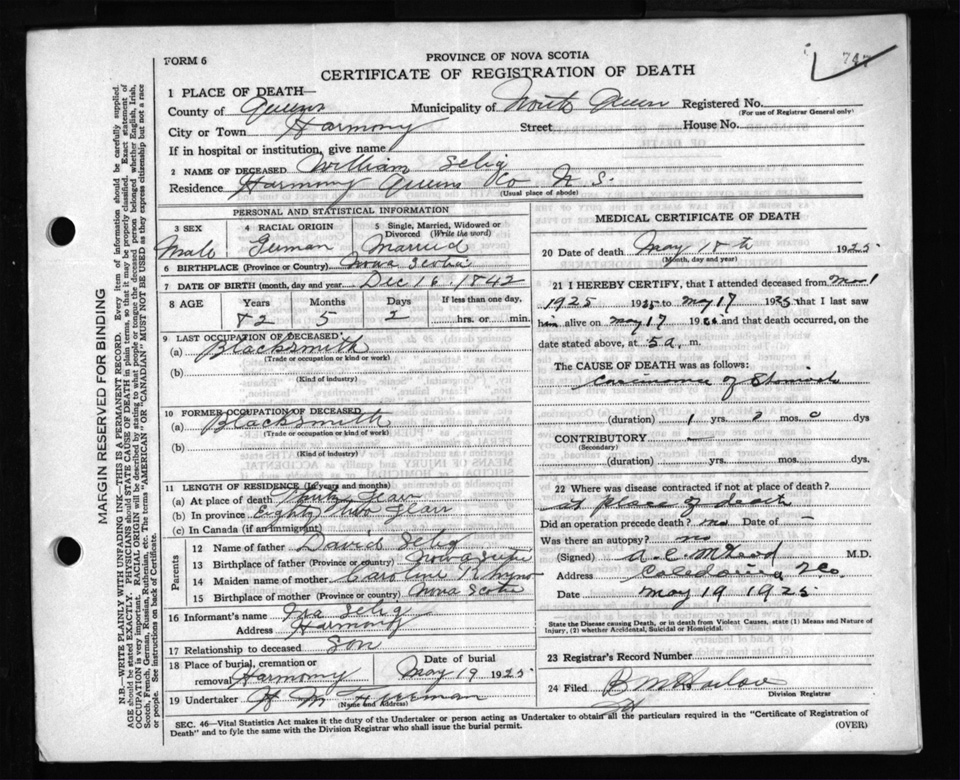 747
FORM 6
PROVINCE OF NOVA SCOTIA
CERTIFICATE OF REGISTRATION OF DEATH
1 PLACE OF DEATH—
County of Queens Municipality of North Queen Registered No.
(For use of Registrar General only)
City or Town Harmony Street House No.
If in hospital or institution, give name
2 NAME OF DECEASED William Selig
Residence Harmony Queens Co N. S.
(Usual place of abode)
PERSONAL AND STATISTICAL INFORMATION
3 SEX 4 RACIAL ORIGIN 5 Single, Married, Widowed or Divorced (Write the word)
Male German Married
6 BIRTHPLACE (Province or Country) Nova Scotia
7 DATE OF BIRTH (month, day and year) Dec 16. 1842
8 AGE Years Months Days If less than one day,
82 5 2 hrs. or min.
9 LAST OCCUPATION OF DECEASED
(a) Blacksmith
(Trade or occupation or kind of work)
(b)
(Kind of industry)
10 FORMER OCCUPATION OF DECEASED
(a) Blacksmith
(Trade or occupation or kind of work)
(b)
(Kind of industry)
11 LENGTH OF RESIDENCE (In years and months)
(a) At place of death
(b) In province Eighty two years
(c) In Canada (if an immigrant)
Parents
12 Name of father David Selig
13 Birthplace of father (Province or country) Nova Scotia
14 Maiden name of mother Caroline Rhyno
15 Birthplace of mother (Province or country) Nova Scotia
16 Informant's name Ira Selig
Address Harmony
17 Relationship to deceased Son
18 Place of burial, cremation or removal Harmony Date of burial May 19 1925
19 Undertaker H M Freeman
(Name and Address)
MEDICAL CERTIFICATE OF DEATH
20 Date of death May 18th 1925
(Month, day and year)
21 I HEREBY CERTIFY, that I attended deceased from Mar 1
1925 1925 to May 17 1925 that I last saw
him alive on May 17 192 and that death occurred, on
date stated above, at 5 a. m.
The CAUSE OF DEATH was as follows:
Carcinoma of Stomach
(duration) 1 yrs. 2 mos. 0 dys
CONTRIBUTORY —
(Secondary)
(duration) yrs. mos. dys
22 Where was disease contracted if not at place of death?
at place of death
Did an operation precede death? no Date of —
Was there an autopsy? no
(Signed) A. C. McLeod M.D.
Address Caledonia Q Co.
Date May 19 1925
State the Disease causing Death, or in death from Violent Causes, state (1) Means and Nature of
Injury, (2) whether Accidental, Suicidal or Homicidal.
23 Registrar's Record Number
24 Filed B M Harlow
Division Registrar
SEC. 46—Vital Statistics Act makes it the duty of the Undertaker or person acting as Undertaker to obtain all the particulars required in the "Certificate of Registration of
Death" and to fyle the same with the Division Registrar who shall issue the burial permit.
(OVER)
MARGIN RESERVED FOR BINDING
N.B.—WRITE PLAINLY WITH UNFADING INK—THIS IS A PERMANENT RECORD. Every item of information should be carefully supplied.
AGE should be stated EXACTLY. PHYSICIANS should STATE CAUSE OF DEATH in plain terms, so that it may be properly classified. Exact statement of
OCCUPATION is very important. RACIAL ORIGIN will be described by stating to what people or tongue the deceased person belonged whether English, Irish,
Scotch, French, German, Russian, Ruthenian, etc. The terms "AMERICAN" OR "CANADIAN" MUST NOT BE USED as they express citizenship but not a race
or people. See instructions on back of Certificate.